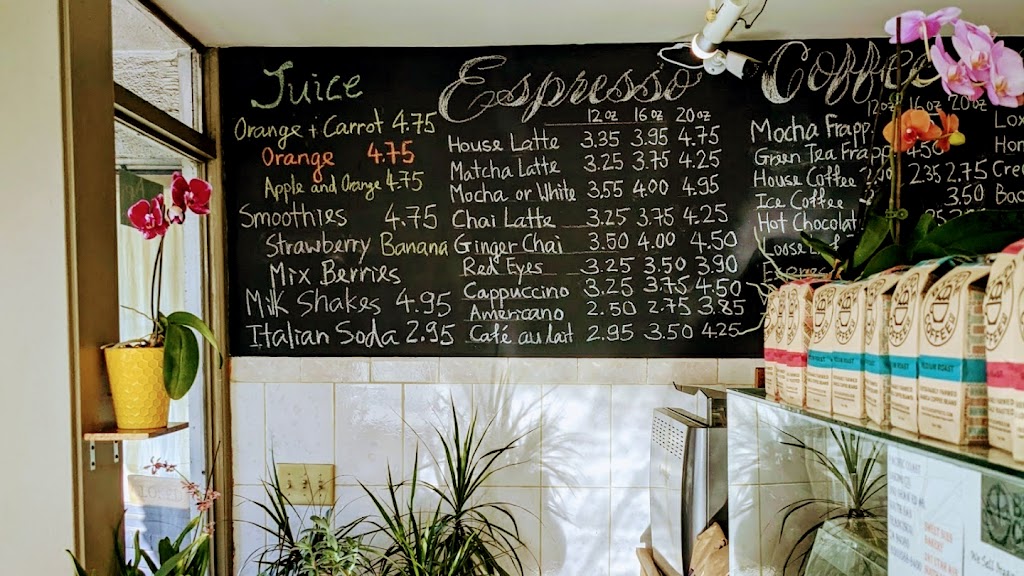 Juice
Orange + Carrot 4.75
Orange 4.75
Apple and Orange 4.75
Smoothies 4.75
Strawberry Banana
Mix Berries
Milk Shakes 4.95
Italian Soda 2.95
Espresso
12 oz 16 oz 20 oz
House Latte 3.35 3.95 4.75
Matcha Latte 3.25 3.75 4.25
Mocha or White 3.55 4.00 4.95
Chai Latte 3.25 3.75 4.25
Ginger Chai 3.50 4.00 4.50
Red Eyes 3.25 3.50 3.90
Cappuccino 3.25 3.75 4.50
Americano 2.50 2.75 3.85
Café au lait 2.95 3.50 4.25
Coffee
12 oz 16 oz 20 oz
Mocha Frapp
Green Tea Frapp 4.50
House Coffee 2.00 2.35 2.75
Ice Coffee 3.50
Hot Chocolat
Loose